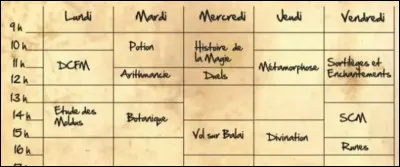 Lundi Mardi Mercredi Jeudi Vendredi
9h
10h Potion Histoire de la Magie
11h DCFM Métamorphose Sortilèges et Enchantements
12h Arithmancie Duels
13h
14h Etude des Moldus Botanique SCM
15h Vol sur Balai Divination
16h Runes